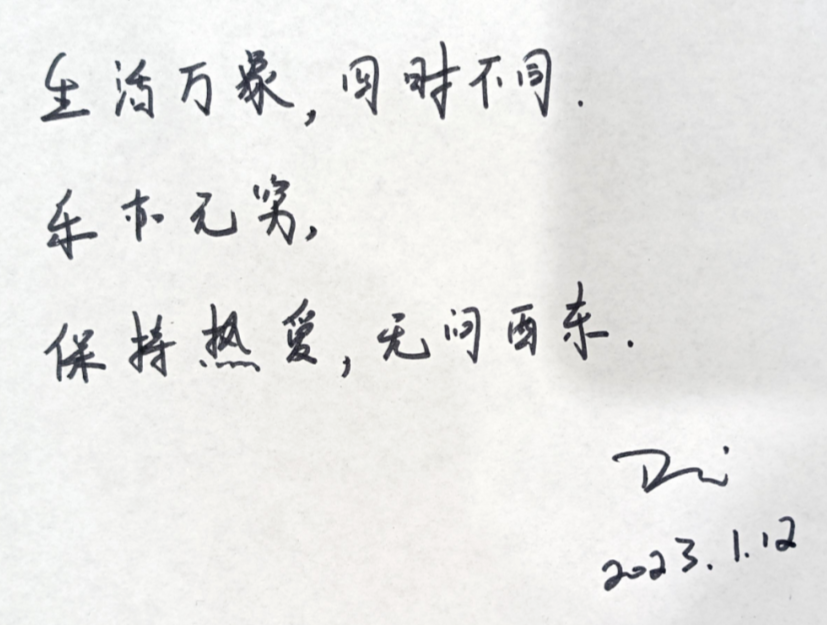 生活万象,四时不同.
乐亦无穷,
保持热爱,无问西东.
2023.1.12